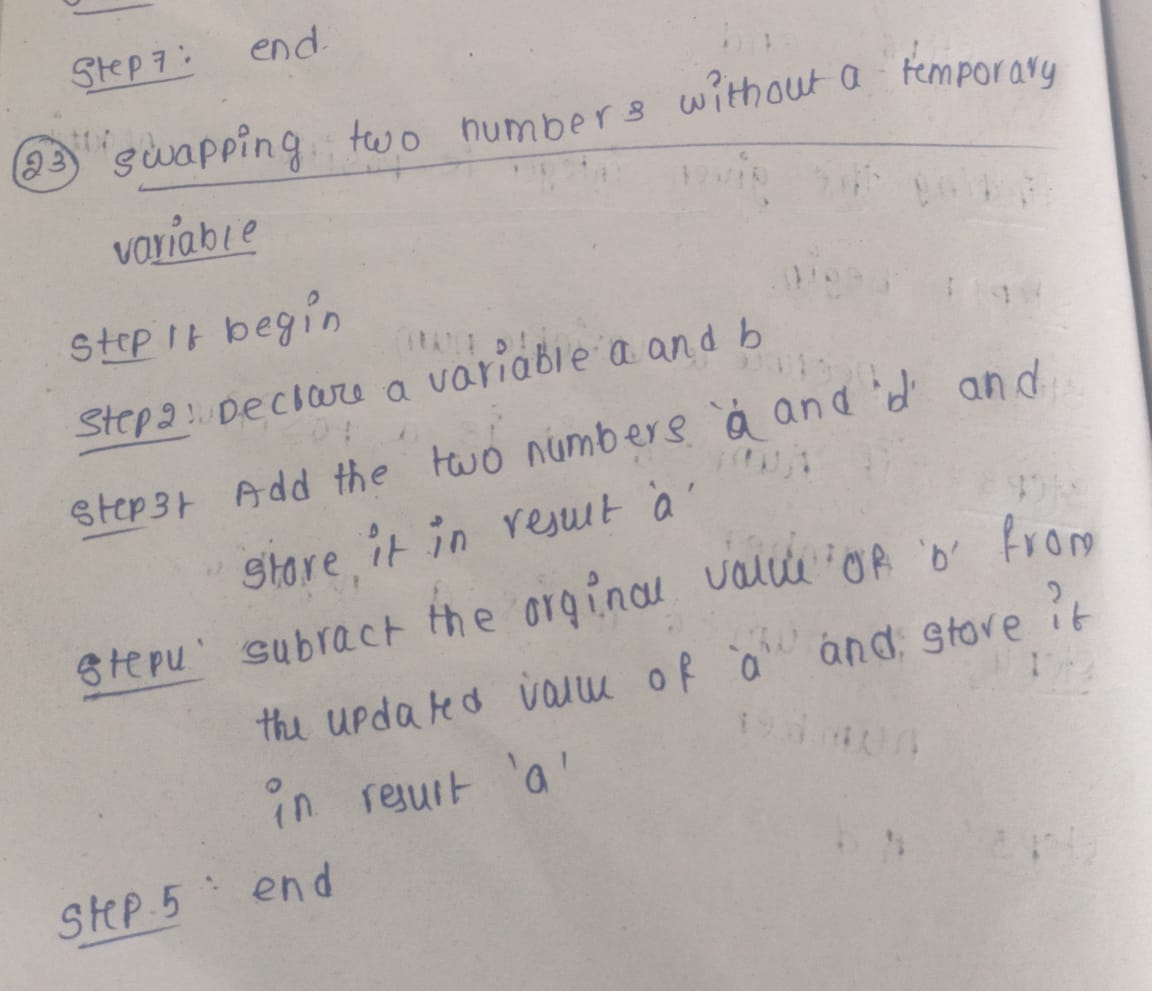 Step 7: end
23 swapping two numbers without a temporary
variable
Step 1: begin
Step 2: Declare a variable a and b
Step 3: Add the two numbers 'a' and 'd' and
store it in result 'a'
Step 4: subract the orginal value of 'b' from
the updated value of 'a' and store it
in result 'a'
Step 5: end